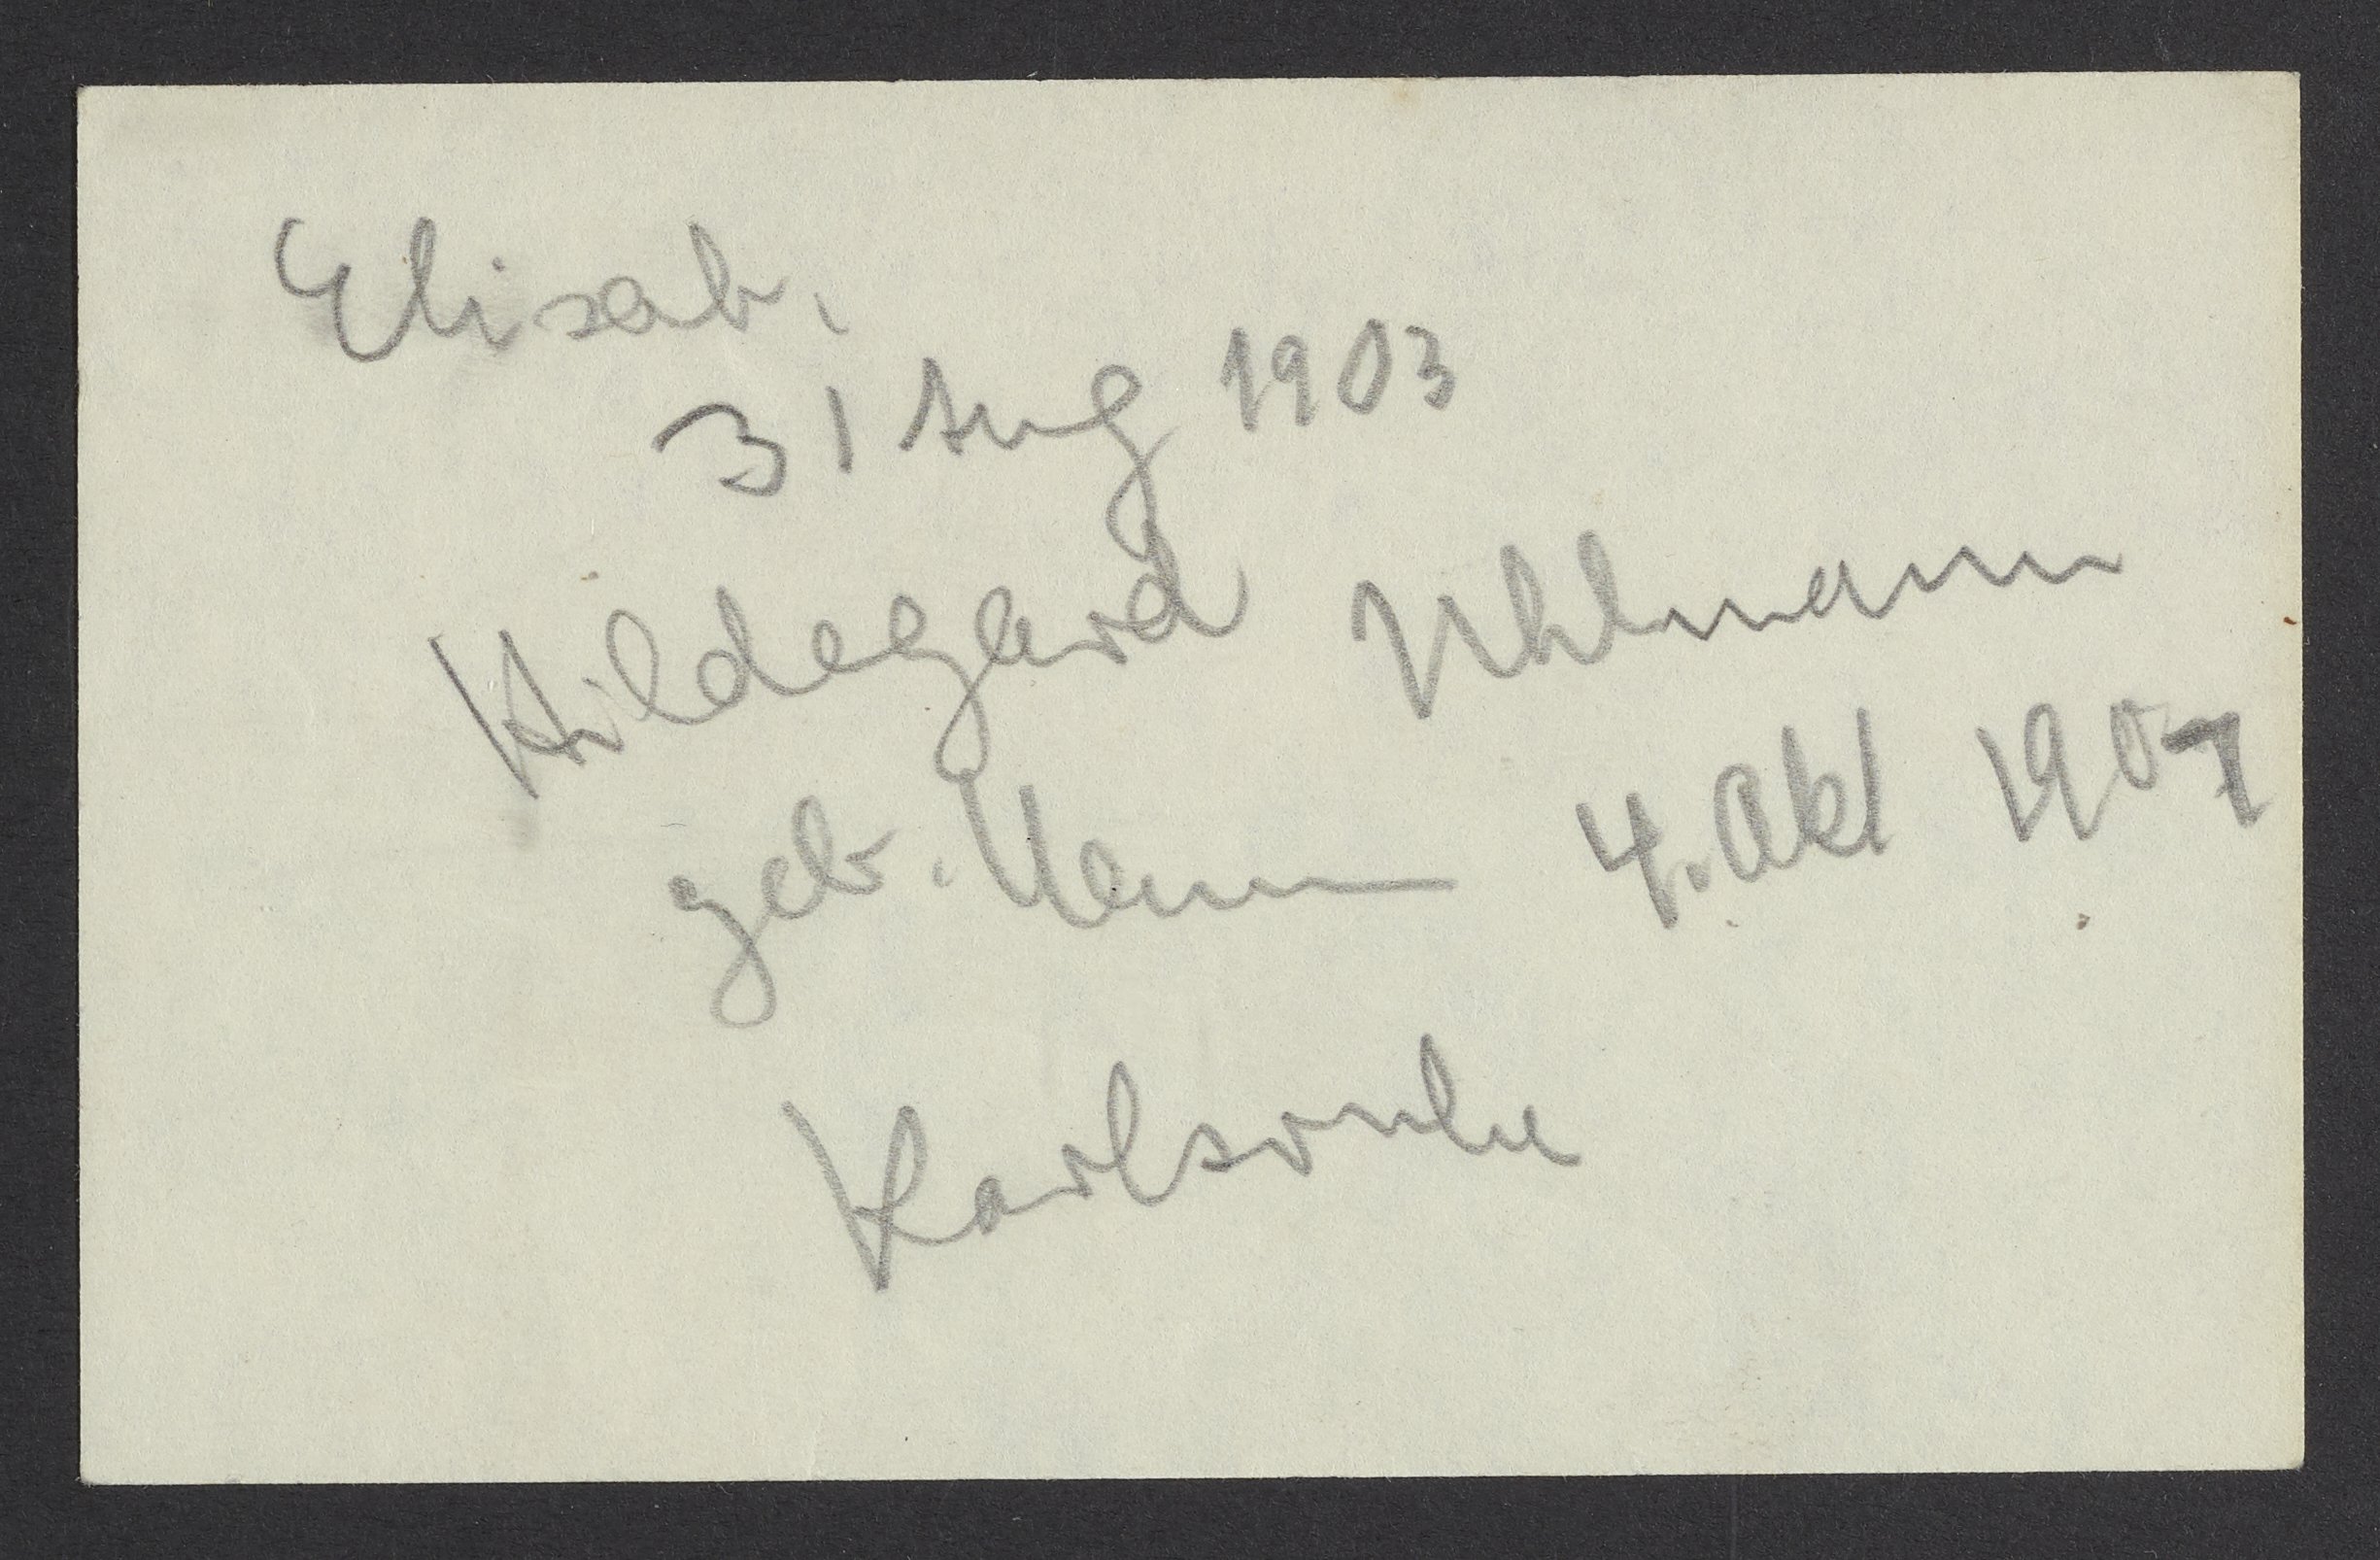 Elisab.
31 Aug 1903
Hildegard Uhlmann
geb. Mann 4. Okt 1907
Karlsruhe